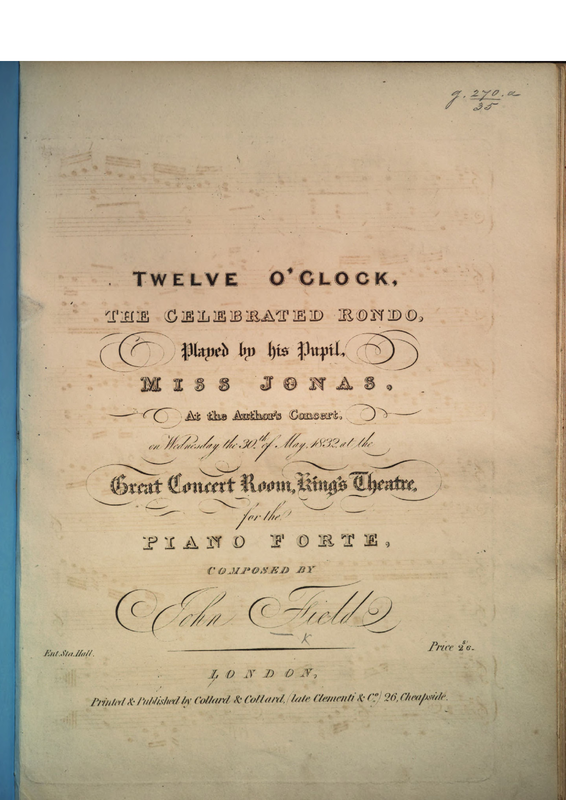 g. 270. a
35
TWELVE O'CLOCK,
THE CELEBRATED RONDO,
Played by his Pupil,
MISS JONAS,
At the Author's Concert,
on Wednesday the 30th of May, 1832, at the
Great Concert Room, King's Theatre,
for the
PIANO FORTE,
COMPOSED BY
John Field
K
Ent. Sta. Hall.
Price 2/6.
LONDON,
Printed & Published by Collard & Collard, (late Clementi & Co.) 26, Cheapside.